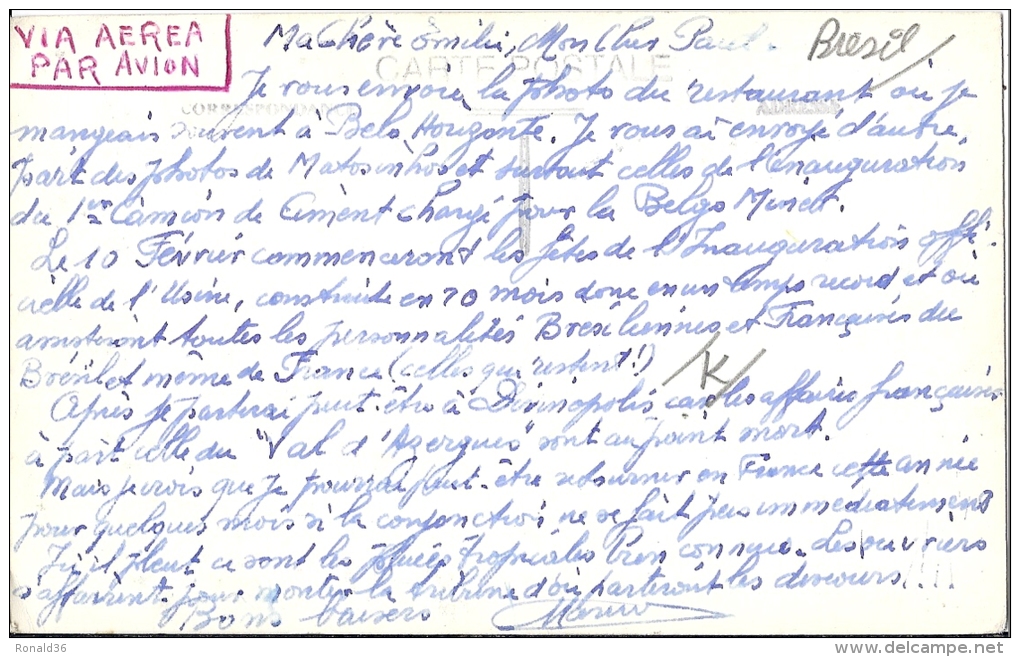 VIA AEREA
PAR AVION
Ma Chère Emilie, Mon Cher Paul.
Bresil
CARTE POSTALE
CORRESPONDANCE
ADRESSE
Je vous envoie la photo du restaurant où je
mangeais souvent à Belo Horizonte. Je vous ai envoyé d'autre
part des photos de Matosinhos et surtout celles de l'inauguration
du 1er Camion de Ciment chargé pour la Belgo Minein.
Le 10 Février commenceront les fêtes de l'Inauguration offi-
cielle de l'Usine, construite en 20 mois donc en un temps record et où
assisteront toutes les personnalités Bresiliennes et Françaises du
Brésil et même de France (celles qui restent!)
K
Après je partirai peut-être à Divinopolis car les affaires françaises
à part celle du "Val d'Azergues" sont au point mort.
Mais je crois que je pourrai peut-être retourner en France cette année
pour quelques mois si la conjonction ne se fait pas immédiatement
Ici il pleut ce sont les pluies tropicales bien connues. Les ouvriers
s'affairent pour monter la tribune d'où partiront les discours!!!!
Bons baisers
delcampe.net
Ronald36